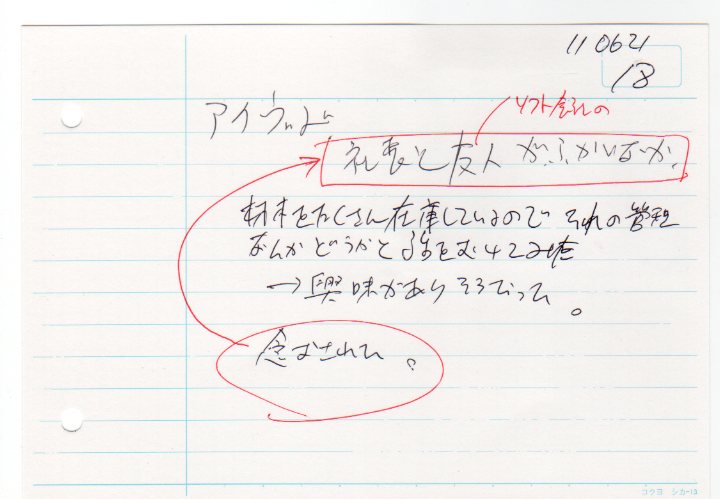 110621
18
アイウッド
ソフト会社の
社長と友人がふかいなか
材木をたくさん在庫しているので それの管理
なんかどうかと話をむけてみた
→興味がありそうだった。
念おされた。
コクヨ シカ-13